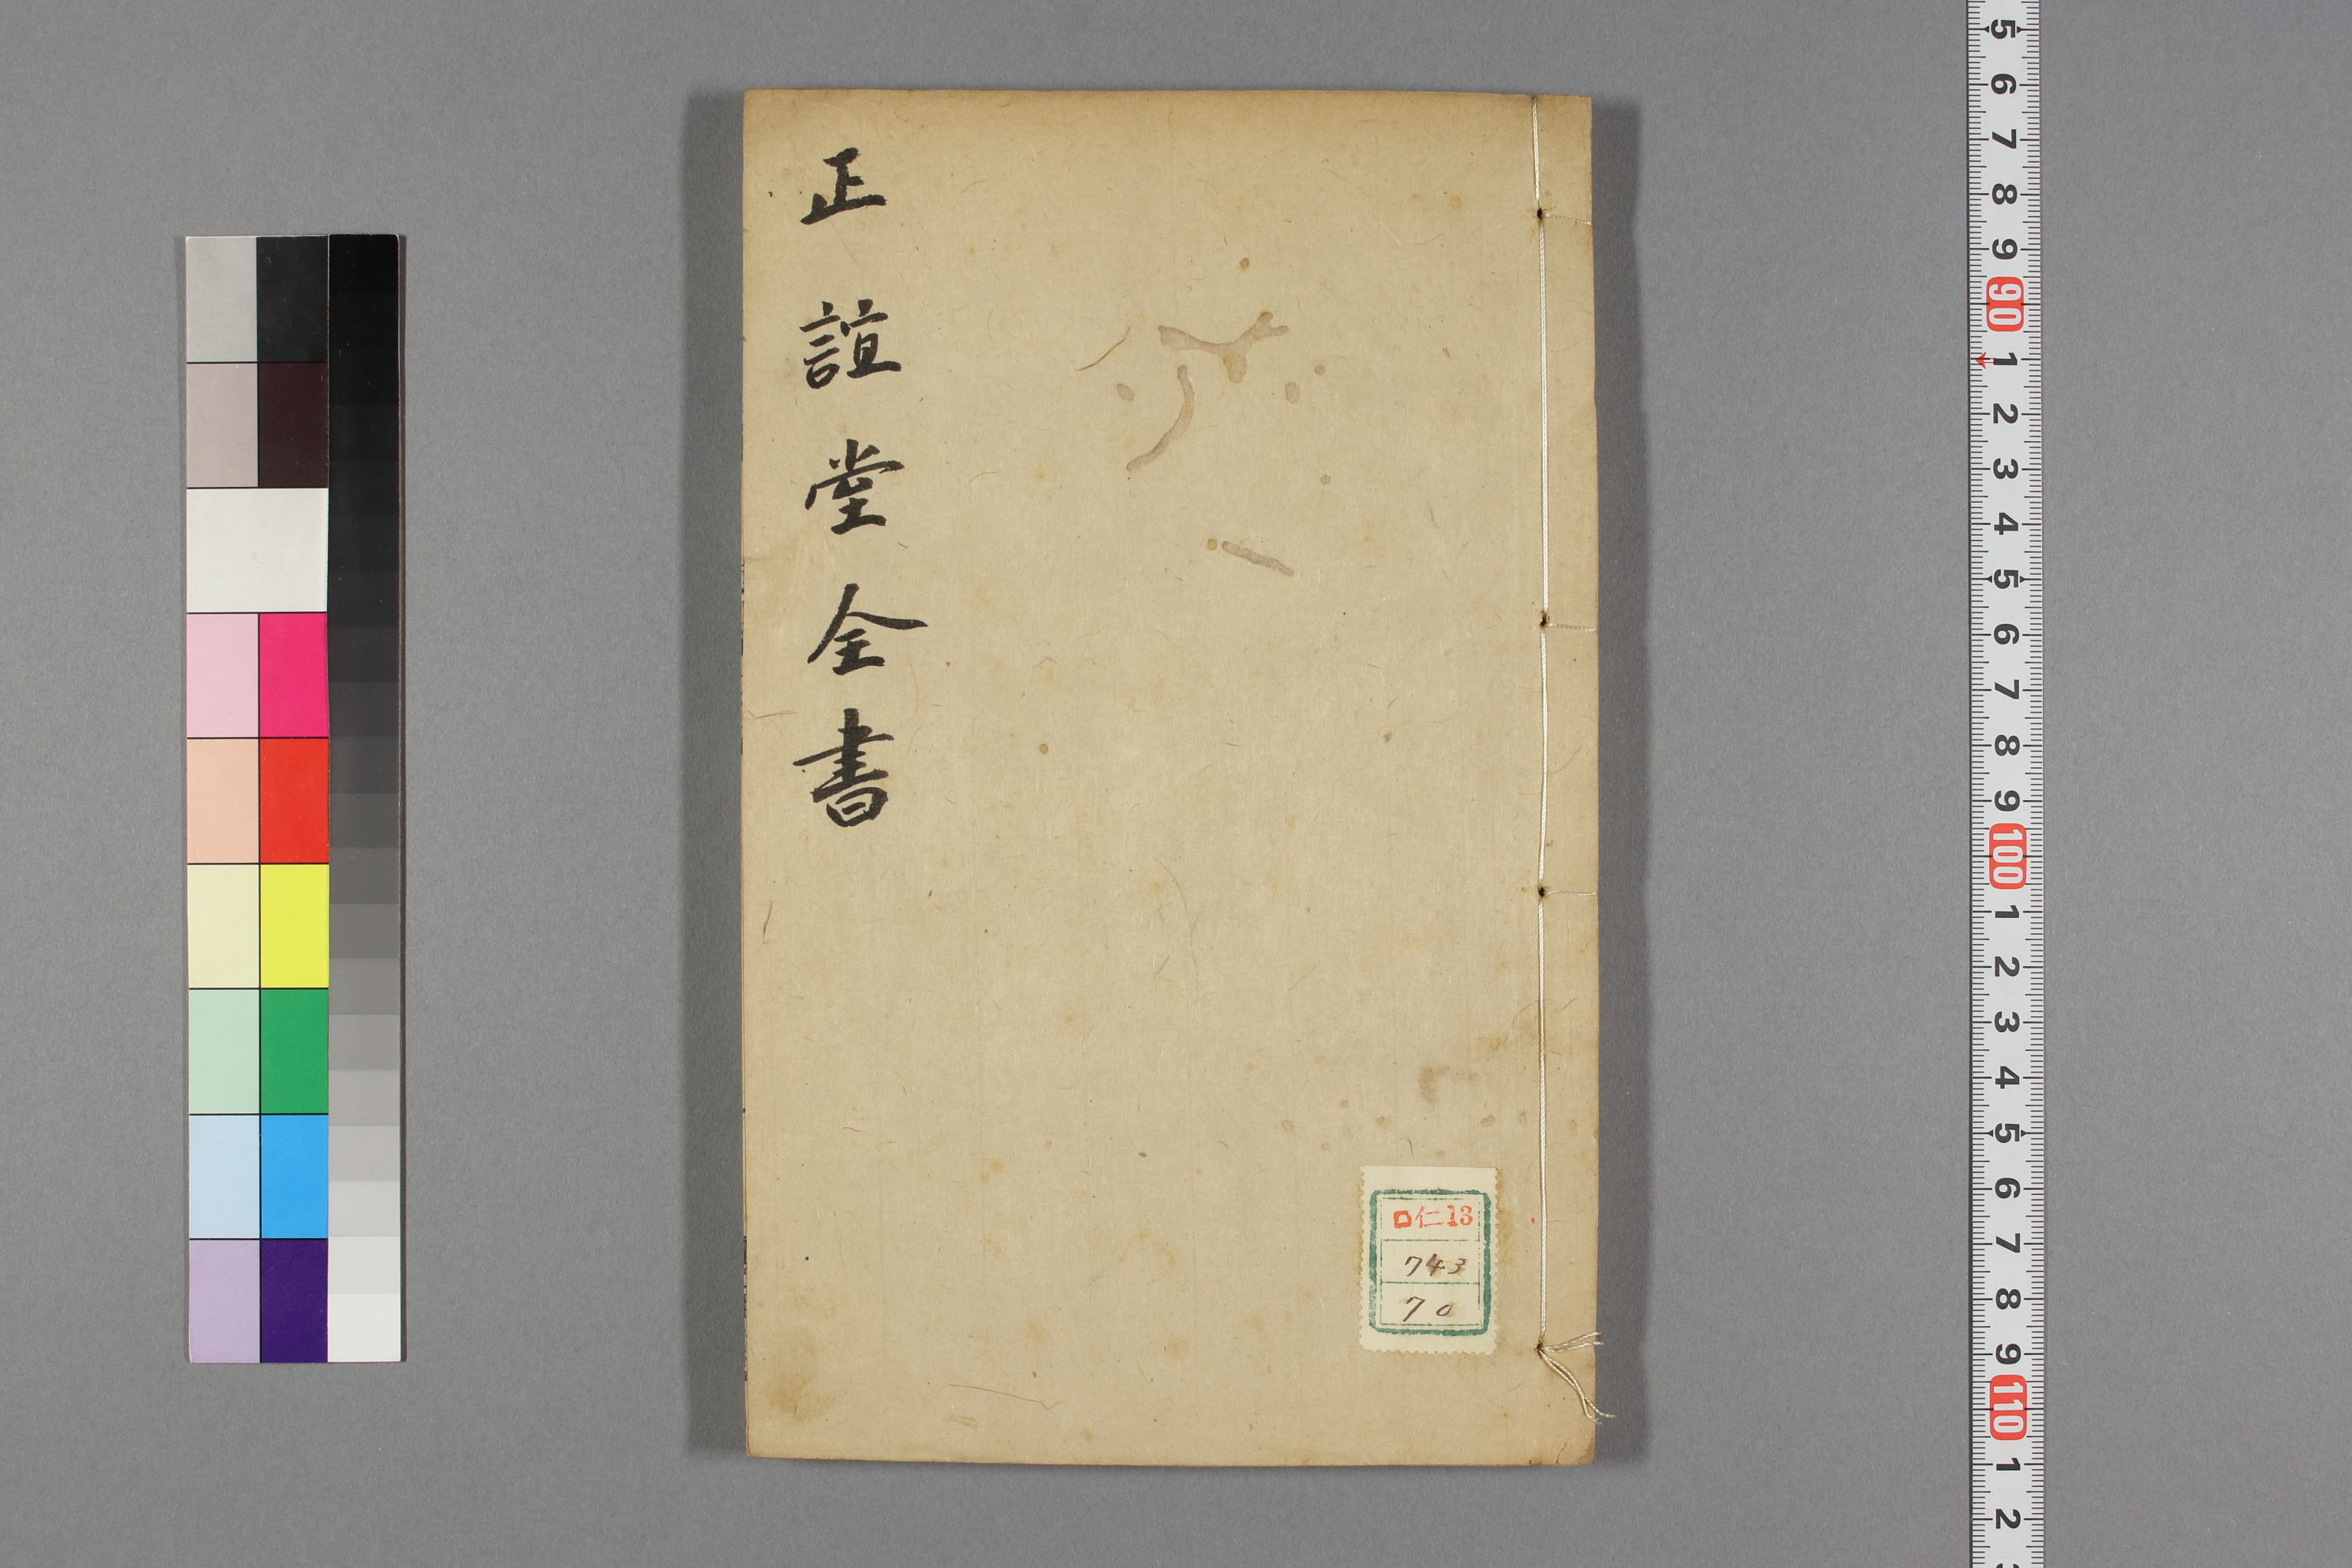 正誼堂全書
ロ仁13
743
70
5
6
7
8
9
90
1
2
3
4
5
6
7
8
9
100
1
2
3
4
5
6
7
8
9
110
1
2